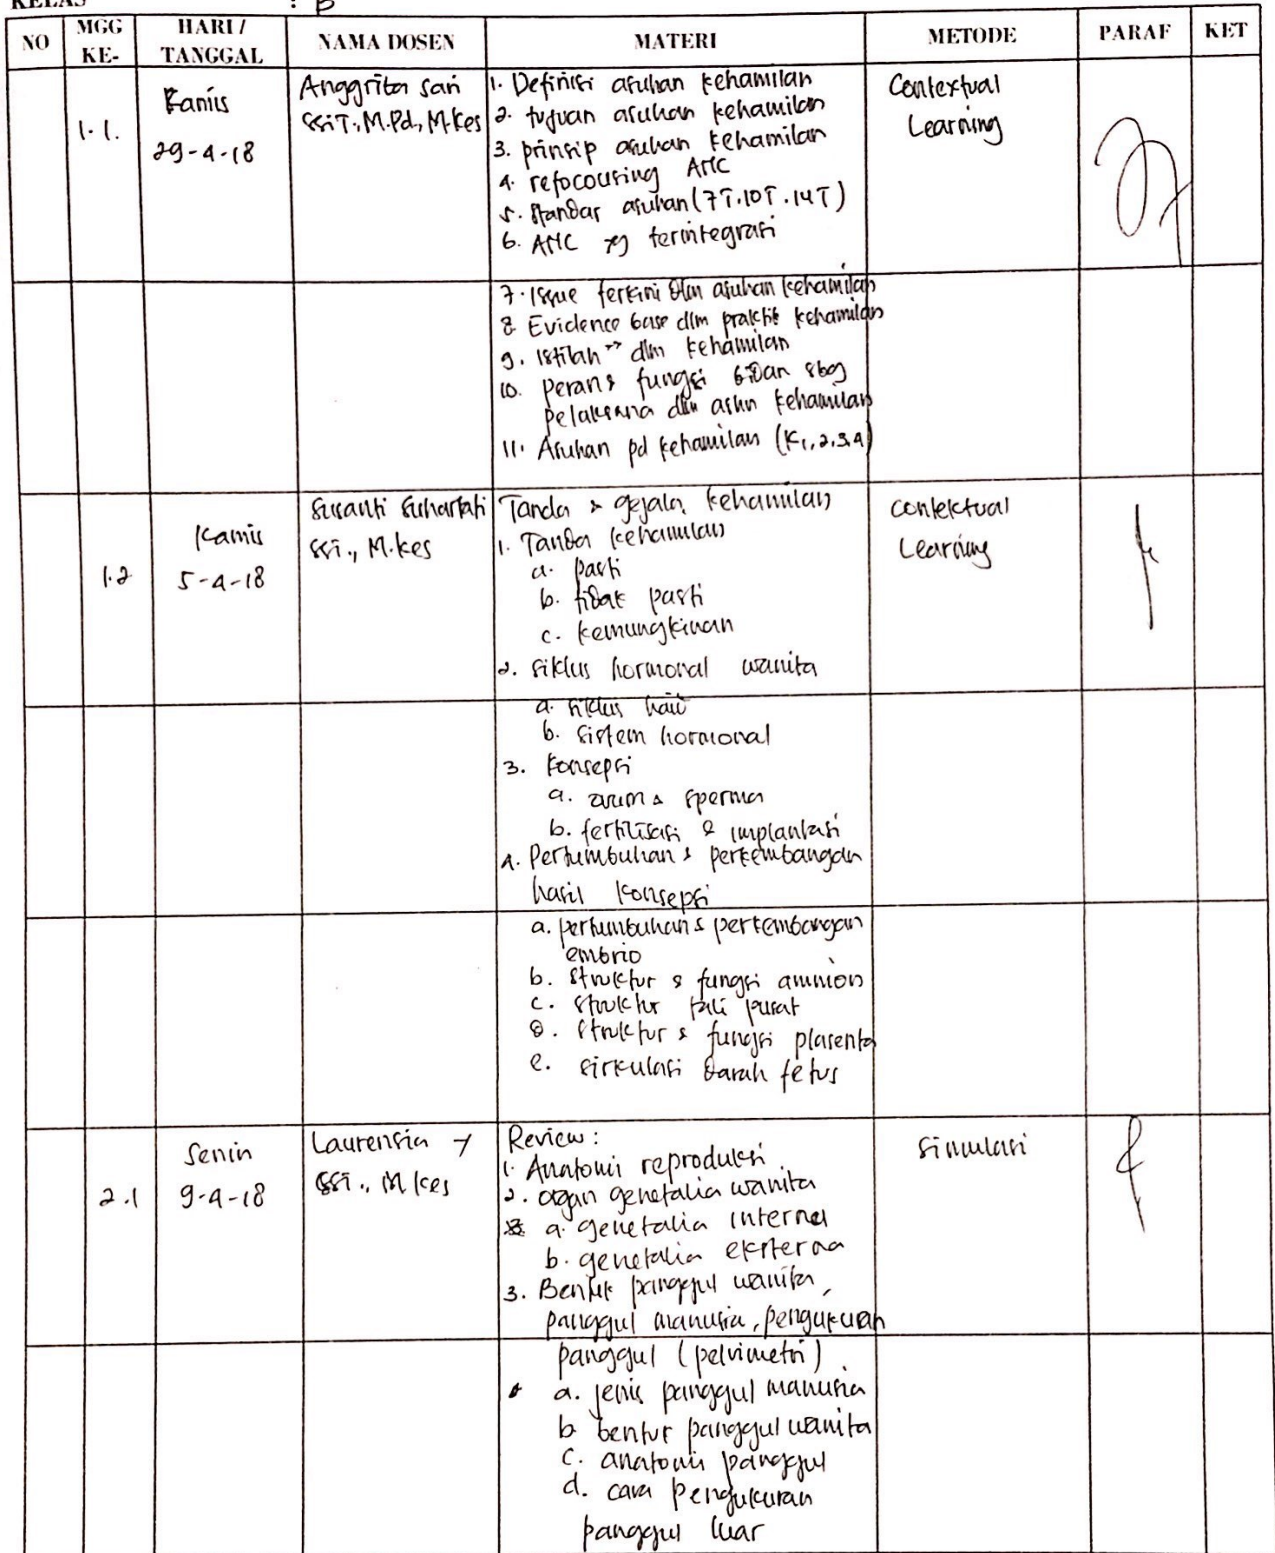 KELAS : B
NO MGG KE- HARI / TANGGAL NAMA DOSEN MATERI METODE PARAF KET
1.1. Kamis 29-4-18
Anggrita Sari
SSiT., M.Pd., M.Kes
1. Definisi asuhan kehamilan
2. tujuan asuhan kehamilan
3. prinsip asuhan kehamilan
4. refocousing ANC
5. standar asuhan (7T.10T.14T)
6. ANC yg terintegrasi
Contextual
Learning
7. Issue terkini dlm asuhan kehamilan
8. Evidence base dlm praktik kehamilan
9. istilah" dlm kehamilan
10. peran & fungsi bidan sbg
pelaksana dlm ashn kehamilan
11. Asuhan pd kehamilan (K1,2,3,4)
1.2 Kamis 5-4-18
Susanti Suhartati
SSi., M.kes
Tanda & gejala kehamilan
1. Tanda kehamilan
a. pasti
b. tidak pasti
c. kemungkinan
2. siklus hormonal wanita
contektual
Learning
a. siklus haid
b. sistem hormonal
3. konsepsi
a. ovum & sperma
b. fertilisasi & implantasi
4. Pertumbuhan & perkembangan
hasil konsepsi
a. pertumbuhan & perkembangan
embrio
b. struktur & fungsi amnion
c. struktur tali pusat
d. struktur & fungsi plasenta
e. sirkulasi darah fetus
2.1 Senin 9-4-18
Laurensia Y
SSi., M.kes
Review :
1. Anatomi reproduksi
2. organ genetalia wanita
a. genetalia interna
b. genetalia eksterna
3. Bentuk panggul wanita,
panggul manusia, pengukuran
Simulasi
panggul (pelvimetri)
a. jenis panggul manusia
b bentuk panggul wanita
c. anatomi panggul
d. cara pengukuran
panggul luar